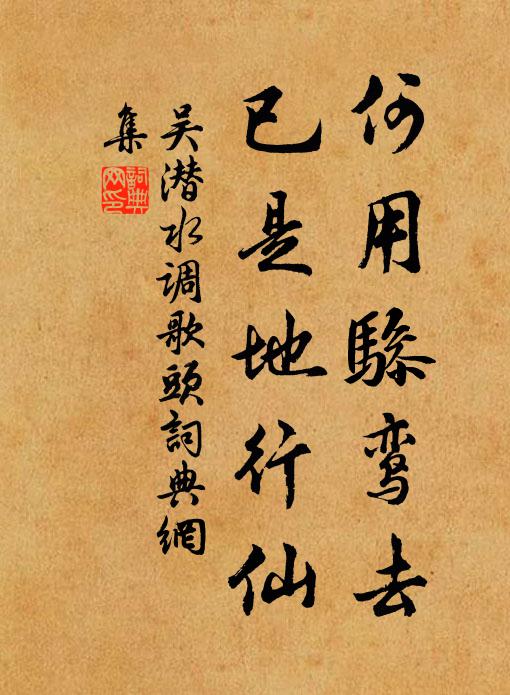 何用骖鸾去
已是地行仙
吴潜水调歌頭詞典網
集
詞典網印